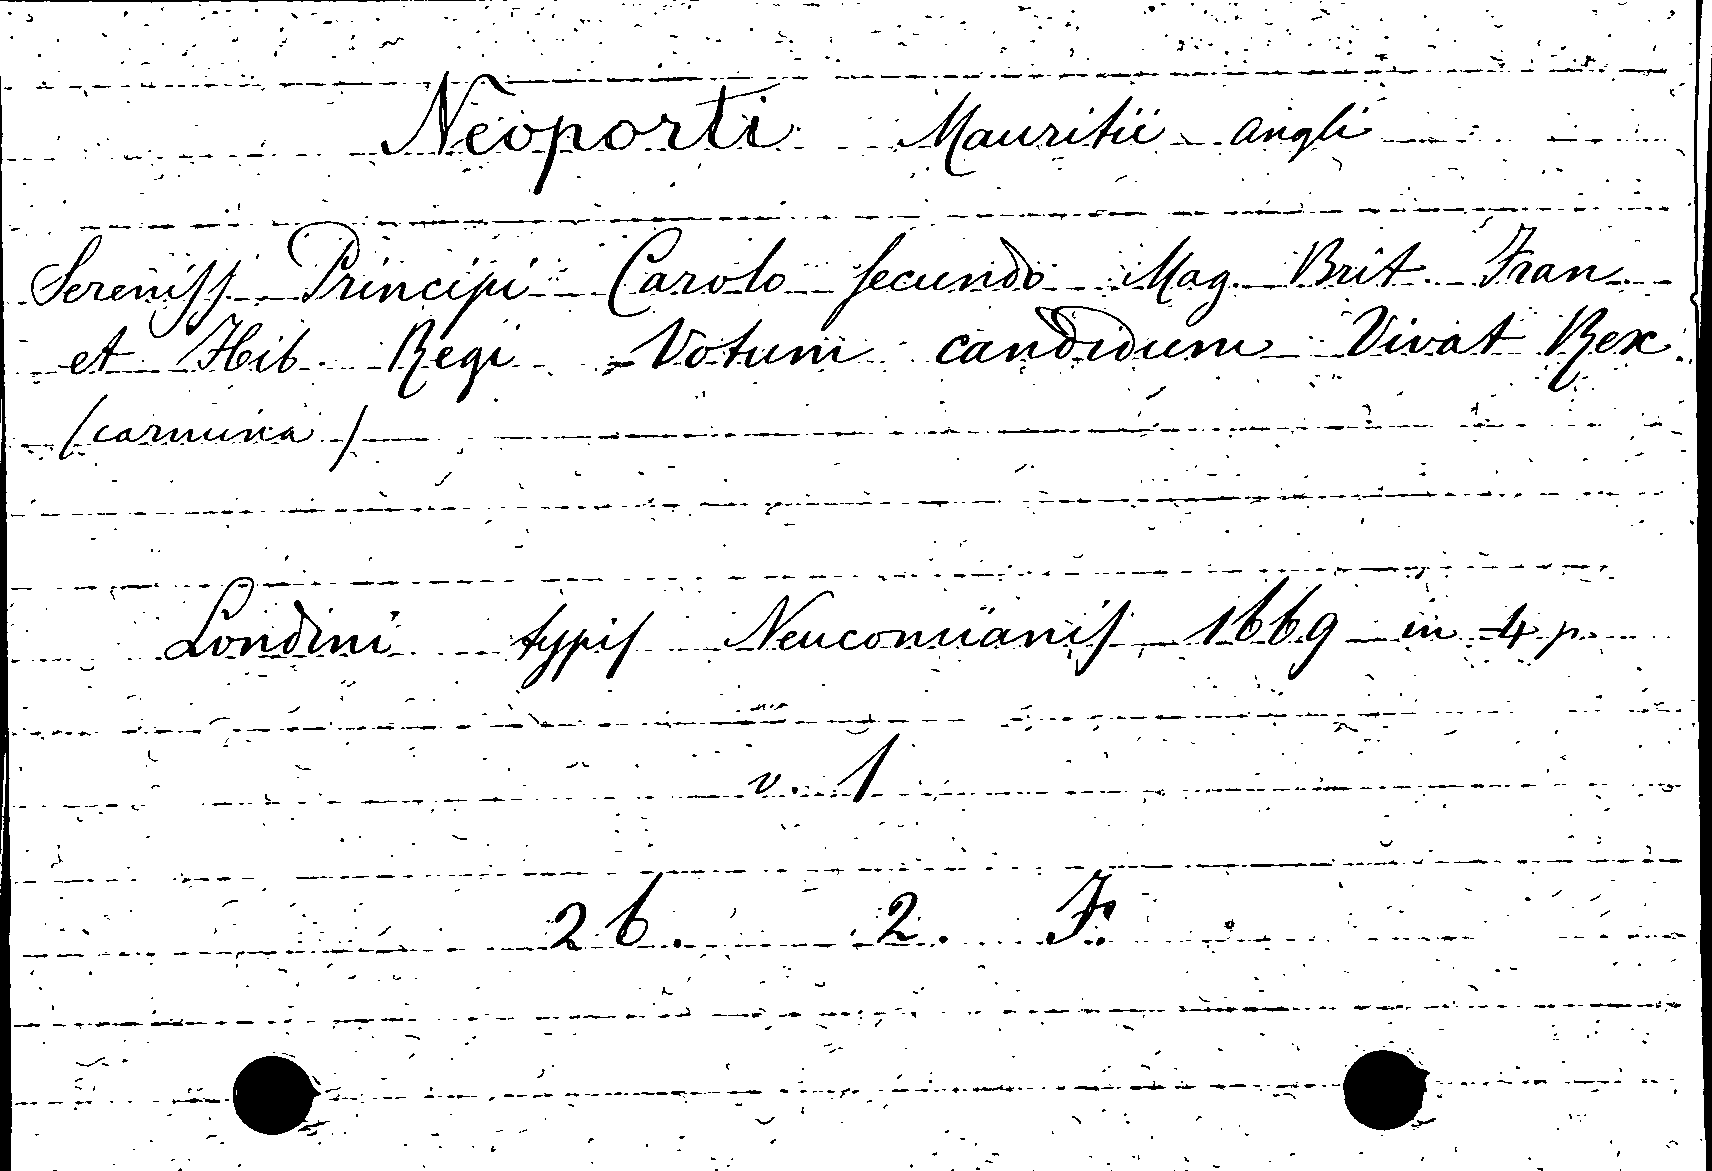 Neoporti Mauritii angli
Sereniss Principi Carolo secundo Mag. Brit. Fran.
et Hib. Regi. Votum candidum Vivat Rex.
(carmina)
Londini typis Neucomianis 1669 in 4 p.
v. 1
26. 2. F.